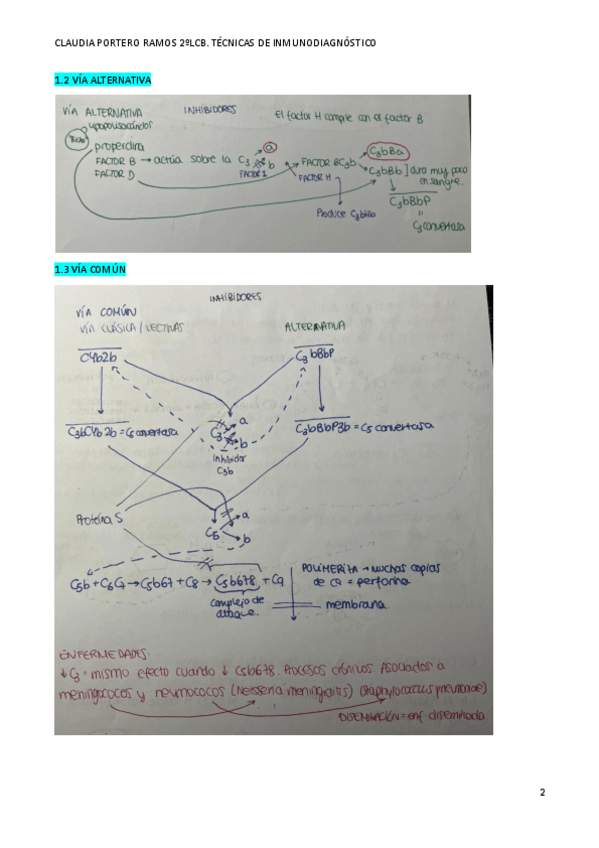 CLAUDIA PORTERO RAMOS 2ºLCB. TÉCNICAS DE INMUNODIAGNÓSTICO
1.2 VÍA ALTERNATIVA
VÍA ALTERNATIVA INHIBIDORES El factor H compite con el factor B
properdina
FACTOR B → actúa sobre la C3 a b FACTOR BC3b C3bBa
FACTOR D FACTOR I FACTOR H C3bBb] dura muy poco
en sangre.
C3bBbP
Produce =
C3 convertasa
1.3 VÍA COMÚN
INHIBIDORES
VÍA COMÚN
VÍA CLÁSICA / LECTINAS ALTERNATIVA
C4b2b C3bBbP
C3bC4b2b = C5 convertasa C3 a b C3bBbP3b = C5 convertasa
inhibidor
C3b
Proteína S
C5 a b
C5b + C6C7 → C5b67 + C8 → C5b678 + C9
complejo de
ataque.
POLIMERIZA → muchas copias
de C9 = perforina
membrana
ENFERMEDADES:
↓ C3 = mismo efecto cuando ↓ C5b678. Procesos crónicos. Asociados a
meningococos y neumococos (Neisseria meningitis) (Staphylococcus pneumoniae)
DISEMINACIÓN = enf diseminada.
2